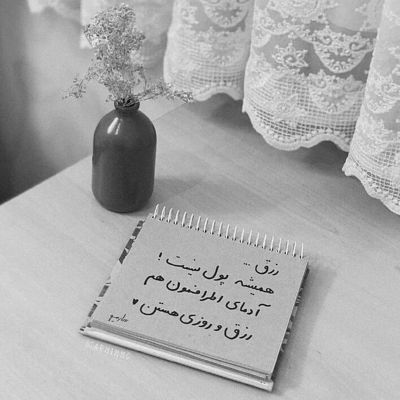 رزق...
همیشه پول نیست!
آدمای اطرافمون هم
رزق و روزی هستن ♥